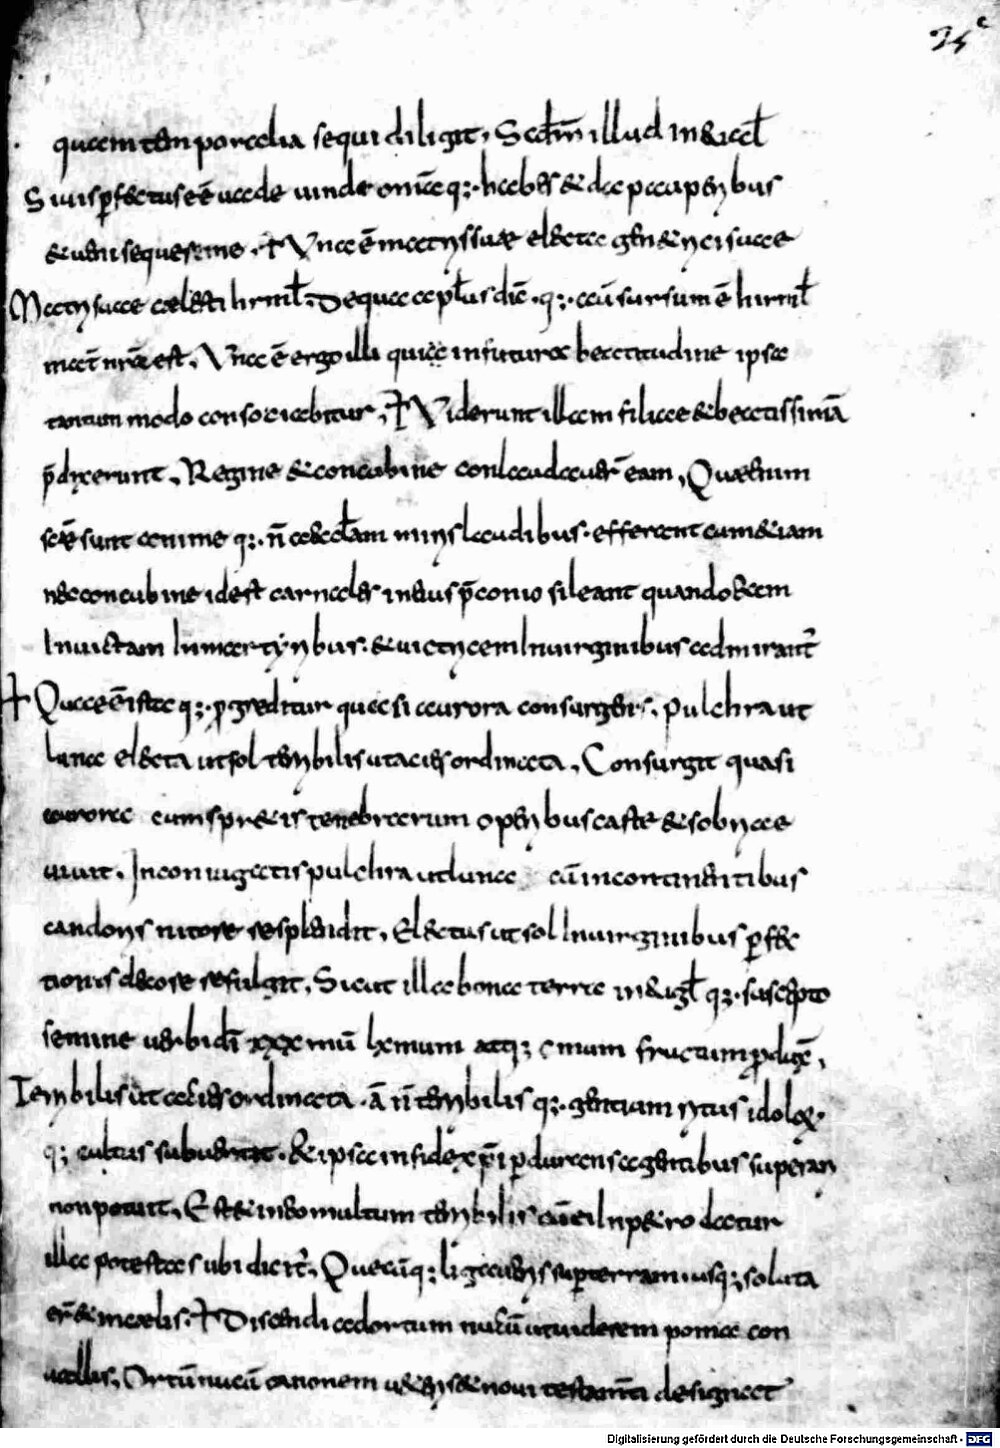 25c
quam temporalia sequi diligit. Scdm illud in & uacl
Si uis ꝑfectus eē uade uinde omia q; habes & da pauperibus
& ueni sequere me. ☩ Vna ē matris suae electa genetrici suae
Matri suae caelesti hrml. De qua apls dic. q; au sursum ē hirml
mat nra est. Vna ē ergo illi quia in futura beatitudine ipsa
tantum modo consociabitur. ☩ Viderunt illam filiae & beatissimā
p̄dixerunt. Regine & concubine conlaudauer eam. Quae enim
scē sunt anime q; n̄ aeclam miris laudibus efferant eam & iam
nec concubine idest carnales in eius p̄conio sileant quando eam
Inuictam In martyribus & uictricem In uirginibus admirant
☩ Quae ē ista q; ꝓgreditur quasi aurora consurgens. pulchra ut
luna electa ut sol terribilis ut acies ordinata. Consurgit quasi
aurora cum spretis tenebrarum operibus caste & sobriae
uiuit. In coniugatis pulchra ut luna cū in continentibus
candoris nitore resplendit. Electus ut sol In uirginibus ꝑfec
tionis decore refulget. Sicut illa bona terra in & ugl q; suscepto
semine uerbi di xxx mu lxmum atq; cmum fructum ꝓduxt.
Terribilis ut acies ordinata. a n terribilis q; gentium ritus idoloꝝ
q; cultus subuertit. & ipsa in fide xpi ꝑdurans a gentibus superari
non potuit. Est & in eo multum terribilis cū ei In petro datur
illa potestas ubi dicit. Quecūq; ligaueris super terram usq; soluta
er & in caelis. ☩ Discendi ad ortum nucū ut uiderem poma con
uallis. Ortū nucū canonem ueteris & noui testamti designat
Digitalisierung gefördert durch die Deutsche Forschungsgemeinschaft - DFG